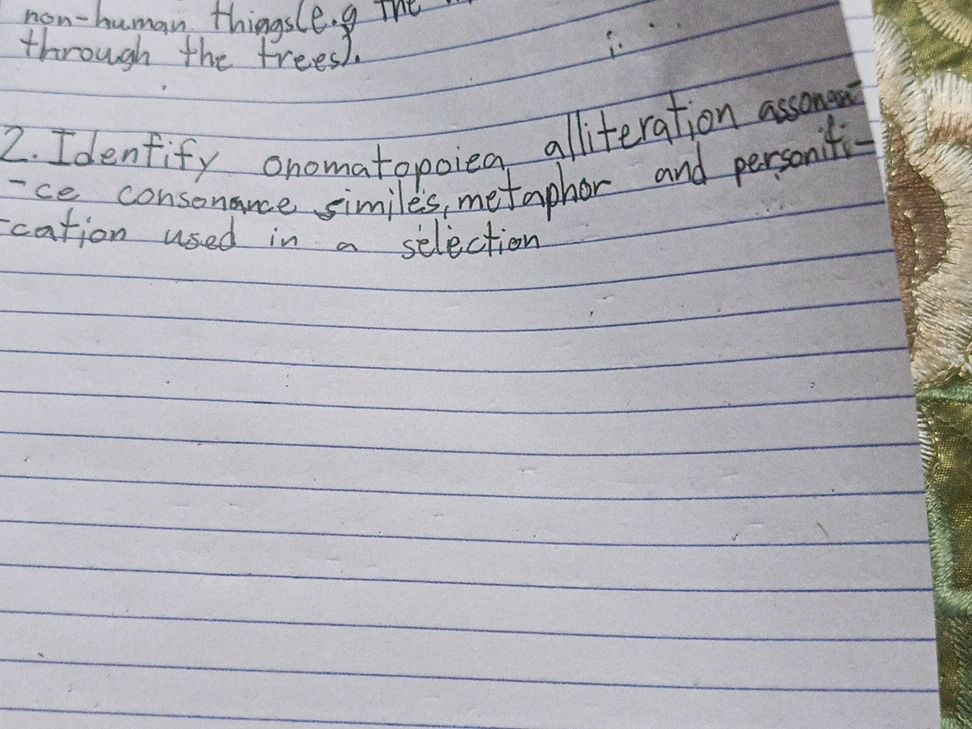 non-human things(e.g The
through the trees).
2. Identify onomatopoiea alliteration assonan-
-ce consonance similes, metaphor and personifi-
-cation used in a selection